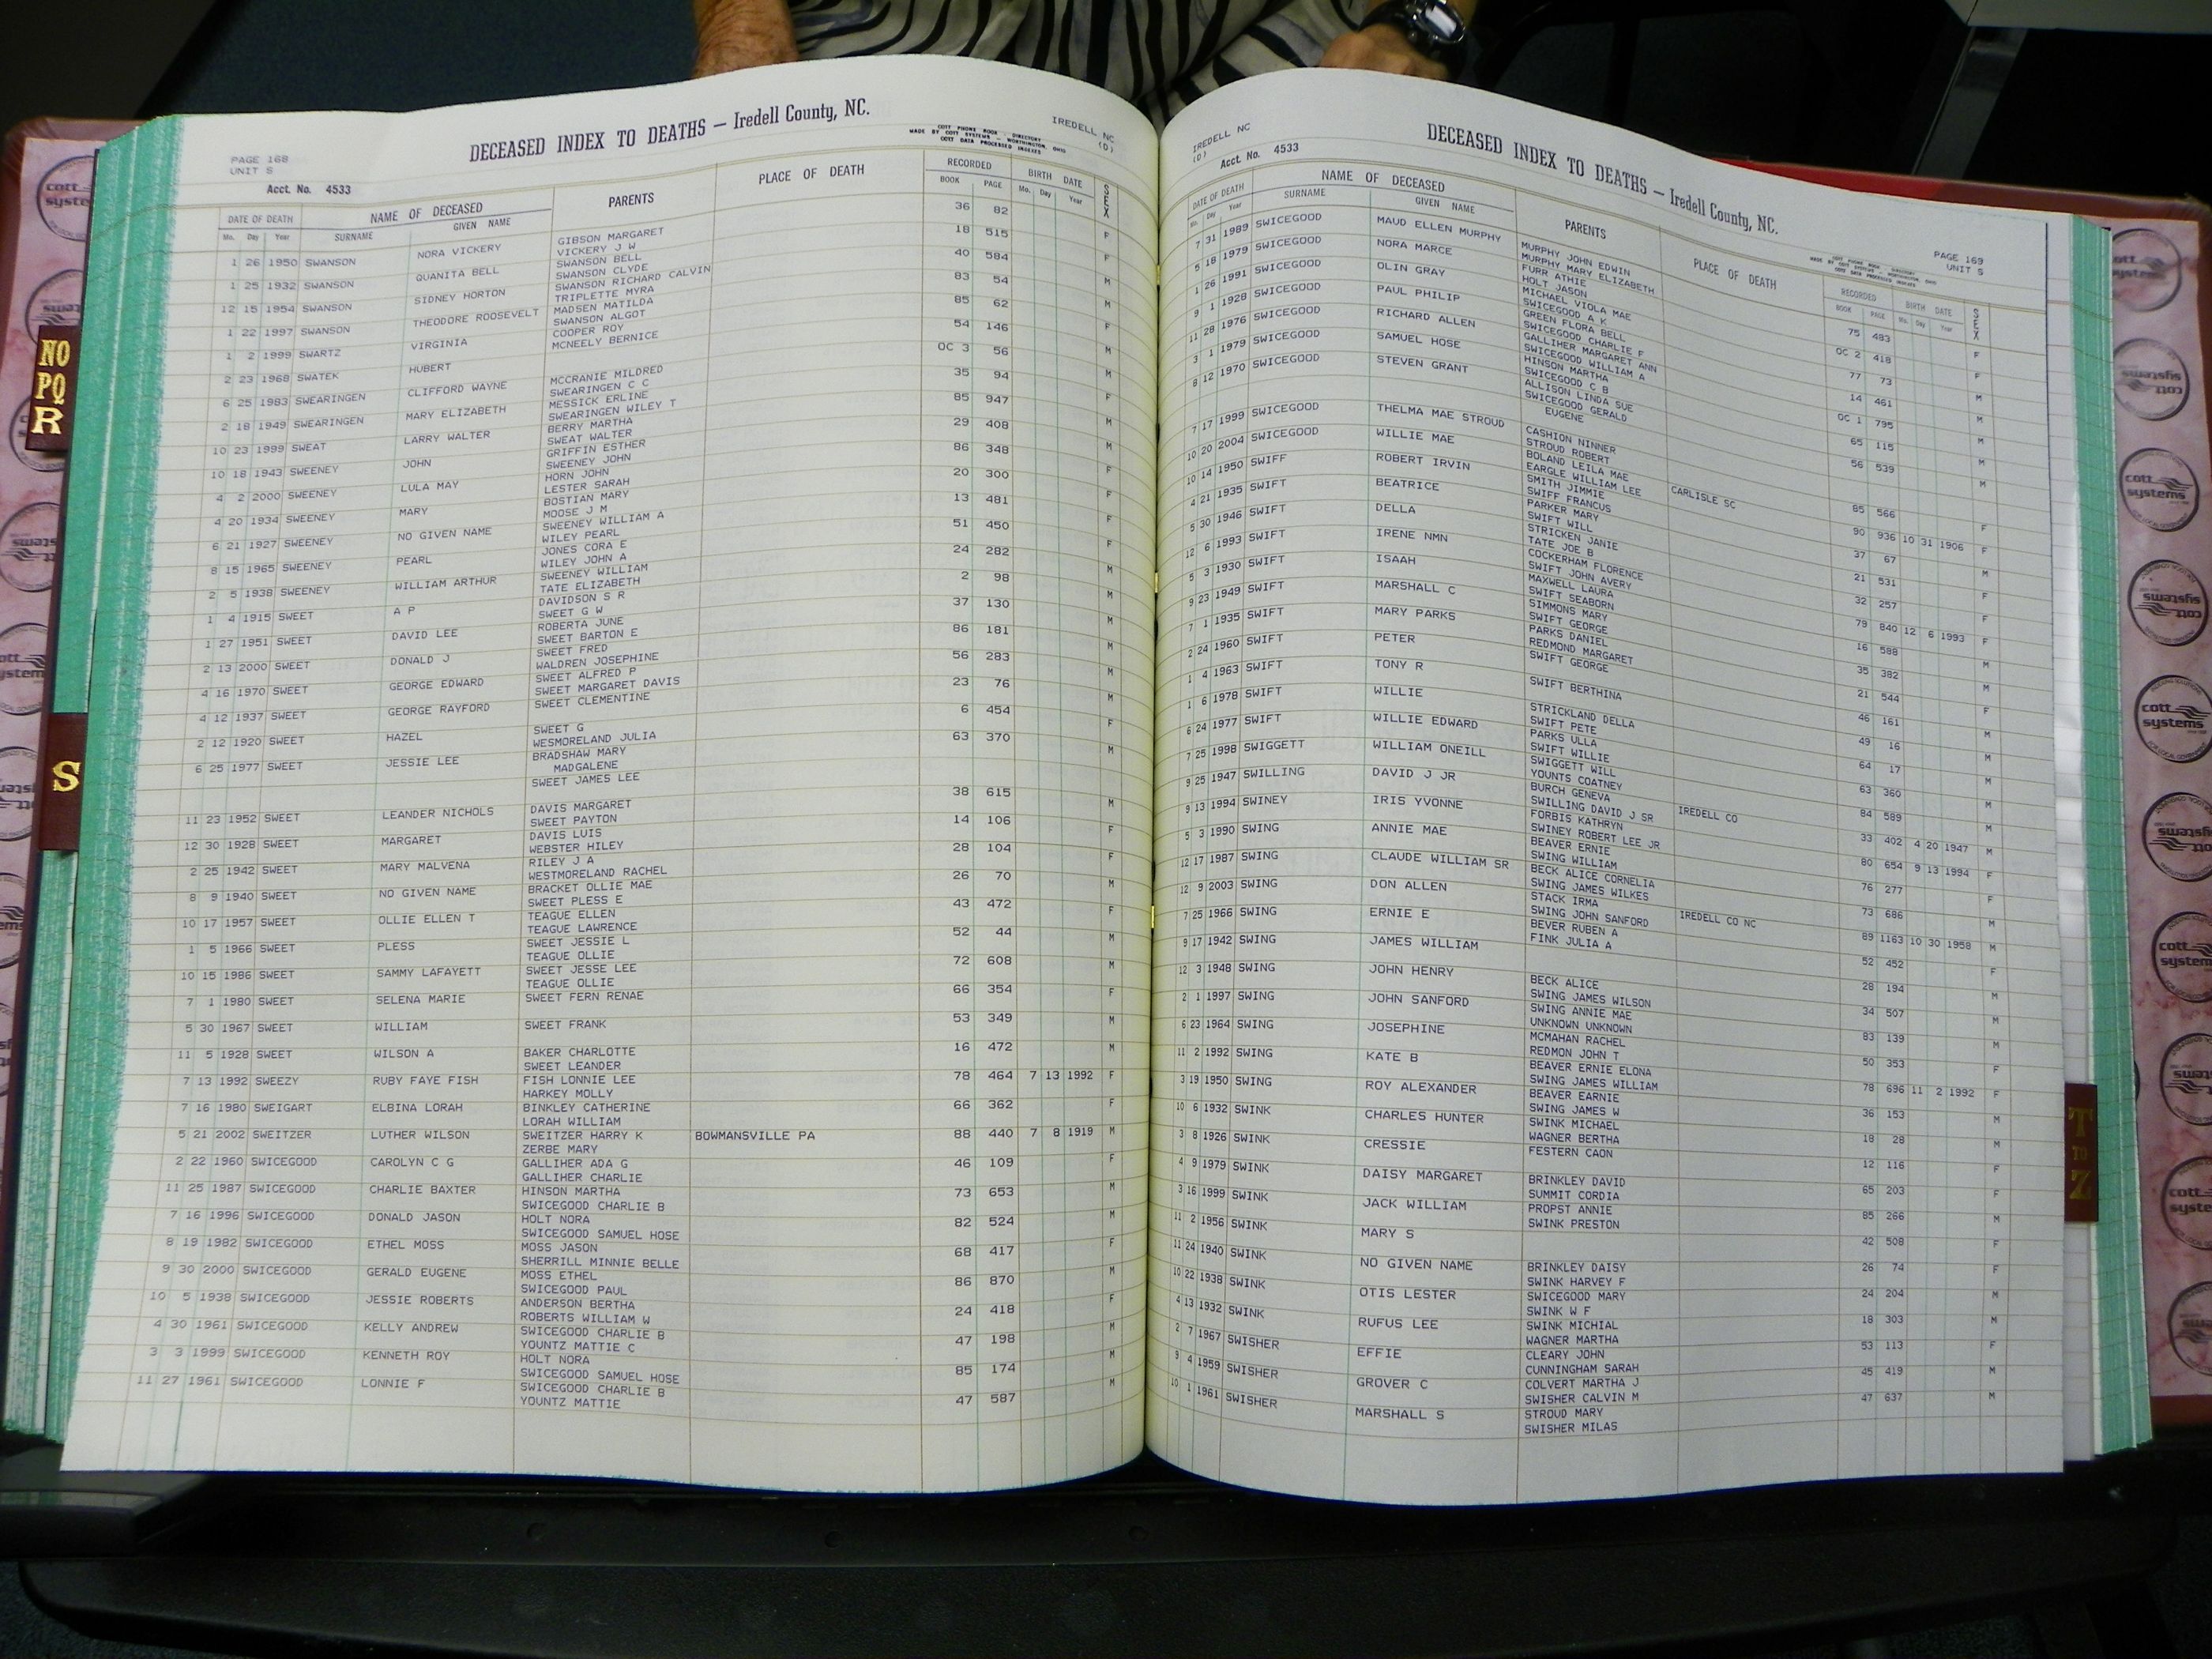 PAGE 168
UNIT S
Acct. No. 4533
DECEASED INDEX TO DEATHS — Iredell County, NC.
COTT PHONE BOOK - DIRECTORY
MADE BY COTT SYSTEMS - WORTHINGTON, OHIO
COTT DATA PROCESSED INDEXES
IREDELL NC
(D)
DATE OF DEATH NAME OF DECEASED PARENTS PLACE OF DEATH RECORDED BIRTH DATE SEX
Mo. Day Year SURNAME GIVEN NAME BOOK PAGE Mo. Day Year
1 26 1950 SWANSON NORA VICKERY GIBSON MARGARET 36 82 F
VICKERY J W
1 25 1932 SWANSON QUANITA BELL SWANSON BELL 18 515 F
SWANSON CLYDE
12 15 1954 SWANSON SIDNEY HORTON SWANSON RICHARD CALVIN 40 584 M
TRIPLETTE MYRA
1 22 1997 SWANSON THEODORE ROOSEVELT MADSEN MATILDA 83 54 M
SWANSON ALGOT
1 2 1999 SWARTZ VIRGINIA COOPER ROY 85 62 F
MCNEELY BERNICE
2 23 1968 SWATEK HUBERT 54 146 M
6 25 1983 SWEARINGEN CLIFFORD WAYNE MCCRANIE MILDRED OC 3 56 M
SWEARINGEN C C
2 18 1949 SWEARINGEN MARY ELIZABETH MESSICK ERLINE 35 94 F
SWEARINGEN WILEY T
10 23 1999 SWEAT LARRY WALTER BERRY MARTHA 85 947 M
SWEAT WALTER
10 18 1943 SWEENEY JOHN GRIFFIN ESTHER 29 408 M
SWEENEY JOHN
4 2 2000 SWEENEY LULA MAY HORN JOHN 86 348 F
LESTER SARAH
4 20 1934 SWEENEY MARY BOSTIAN MARY 20 300 F
MOOSE J M
6 21 1927 SWEENEY NO GIVEN NAME SWEENEY WILLIAM A 13 481 F
WILEY PEARL
8 15 1965 SWEENEY PEARL JONES CORA E 51 450 F
WILEY JOHN A
2 5 1938 SWEENEY WILLIAM ARTHUR SWEENEY WILLIAM 24 282 M
TATE ELIZABETH
1 4 1915 SWEET A P DAVIDSON S R 2 98 M
SWEET G W
1 27 1951 SWEET DAVID LEE ROBERTA JUNE 37 130 M
SWEET BARTON E
2 13 2000 SWEET DONALD J SWEET FRED 86 181 M
WALDREN JOSEPHINE
4 16 1970 SWEET GEORGE EDWARD SWEET ALFRED P 56 283 M
SWEET MARGARET DAVIS
4 12 1937 SWEET GEORGE RAYFORD SWEET CLEMENTINE 23 76 M
2 12 1920 SWEET HAZEL SWEET G 6 454 F
WESMORELAND JULIA
6 25 1977 SWEET JESSIE LEE BRADSHAW MARY 63 370 M
MADGALENE
SWEET JAMES LEE
11 23 1952 SWEET LEANDER NICHOLS DAVIS MARGARET 38 615 M
SWEET PAYTON
12 30 1928 SWEET MARGARET DAVIS LUIS 14 106 F
WEBSTER HILEY
2 25 1942 SWEET MARY MALVENA RILEY J A 28 104 F
WESTMORELAND RACHEL
8 9 1940 SWEET NO GIVEN NAME BRACKET OLLIE MAE 26 70 M
SWEET PLESS E
10 17 1957 SWEET OLLIE ELLEN T TEAGUE ELLEN 43 472 F
TEAGUE LAWRENCE
1 5 1966 SWEET PLESS SWEET JESSIE L 52 44 M
TEAGUE OLLIE
10 15 1986 SWEET SAMMY LAFAYETT SWEET JESSE LEE 72 608 M
TEAGUE OLLIE
7 1 1980 SWEET SELENA MARIE SWEET FERN RENAE 66 354 F
5 30 1967 SWEET WILLIAM SWEET FRANK 53 349 M
11 5 1928 SWEET WILSON A BAKER CHARLOTTE 16 472 M
SWEET LEANDER
7 13 1992 SWEEZY RUBY FAYE FISH FISH LONNIE LEE 78 464 7 13 1992 F
HARKEY MOLLY
7 16 1980 SWEIGART ELBINA LORAH BINKLEY CATHERINE 66 362 F
LORAH WILLIAM
5 21 2002 SWEITZER LUTHER WILSON SWEITZER HARRY K BOWMANSVILLE PA 88 440 7 8 1919 M
ZERBE MARY
2 22 1960 SWICEGOOD CAROLYN C G GALLIHER ADA G 46 109 F
GALLIHER CHARLIE
11 25 1987 SWICEGOOD CHARLIE BAXTER HINSON MARTHA 73 653 M
SWICEGOOD CHARLIE B
7 16 1996 SWICEGOOD DONALD JASON HOLT NORA 82 524 M
SWICEGOOD SAMUEL HOSE
8 19 1982 SWICEGOOD ETHEL MOSS MOSS JASON 68 417 F
SHERRILL MINNIE BELLE
9 30 2000 SWICEGOOD GERALD EUGENE MOSS ETHEL 86 870 M
SWICEGOOD PAUL
10 5 1938 SWICEGOOD JESSIE ROBERTS ANDERSON BERTHA 24 418 F
ROBERTS WILLIAM W
4 30 1961 SWICEGOOD KELLY ANDREW SWICEGOOD CHARLIE B 47 198 M
YOUNTZ MATTIE C
3 3 1999 SWICEGOOD KENNETH ROY HOLT NORA 85 174 M
SWICEGOOD SAMUEL HOSE
11 27 1961 SWICEGOOD LONNIE F SWICEGOOD CHARLIE B 47 587 M
YOUNTZ MATTIE
IREDELL NC
(D)
Acct. No. 4533
DECEASED INDEX TO DEATHS — Iredell County, NC.
COTT PHONE BOOK - DIRECTORY
MADE BY COTT SYSTEMS - WORTHINGTON, OHIO
COTT DATA PROCESSED INDEXES
PAGE 169
UNIT S
DATE OF DEATH NAME OF DECEASED PARENTS PLACE OF DEATH RECORDED BIRTH DATE SEX
Mo. Day Year SURNAME GIVEN NAME BOOK PAGE Mo. Day Year
7 31 1989 SWICEGOOD MAUD ELLEN MURPHY MURPHY JOHN EDWIN 75 483 F
MURPHY MARY ELIZABETH
5 18 1979 SWICEGOOD NORA MARCE FURR ATHIE OC 2 418 F
HOLT JASON
1 26 1991 SWICEGOOD OLIN GRAY MICHAEL VIOLA MAE 77 73 M
SWICEGOOD A K
9 1 1928 SWICEGOOD PAUL PHILIP GREEN FLORA BELL 14 461 M
SWICEGOOD CHARLIE F
11 28 1976 SWICEGOOD RICHARD ALLEN GALLIHER MARGARET ANN OC 1 795 M
SWICEGOOD WILLIAM A
3 1 1979 SWICEGOOD SAMUEL HOSE HINSON MARTHA 65 115 M
SWICEGOOD C B
8 12 1970 SWICEGOOD STEVEN GRANT ALLISON LINDA SUE 56 539 M
SWICEGOOD GERALD
EUGENE
7 17 1999 SWICEGOOD THELMA MAE STROUD CASHION NINNER 85 566 F
STROUD ROBERT
10 20 2004 SWICEGOOD WILLIE MAE BOLAND LEILA MAE CARLISLE SC 90 936 10 31 1906 F
EARGLE WILLIAM LEE
10 14 1950 SWIFF ROBERT IRVIN SMITH JIMMIE 37 67 M
SWIFF FRANCUS
4 21 1935 SWIFT BEATRICE PARKER MARY 21 531 F
SWIFT WILL
5 30 1946 SWIFT DELLA STRICKEN JANIE 32 257 F
TATE JOE B
12 6 1993 SWIFT IRENE NMN COCKERHAM FLORENCE 79 840 12 6 1993 F
SWIFT JOHN AVERY
5 3 1930 SWIFT ISAAH MAXWELL LAURA 16 588 M
SWIFT SEABORN
9 23 1949 SWIFT MARSHALL C SIMMONS MARY 35 382 M
SWIFT GEORGE
7 1 1935 SWIFT MARY PARKS PARKS DANIEL 21 544 F
REDMOND MARGARET
2 24 1960 SWIFT PETER SWIFT GEORGE 46 161 M
1 4 1963 SWIFT TONY R SWIFT BERTHINA 49 16 M
1 6 1978 SWIFT WILLIE STRICKLAND DELLA 64 17 M
SWIFT PETE
6 24 1977 SWIFT WILLIE EDWARD PARKS ULLA 63 360 M
SWIFT WILLIE
7 25 1998 SWIGGETT WILLIAM ONEILL SWIGGETT WILL 84 589 M
YOUNTS COATNEY
9 25 1947 SWILLING DAVID J JR BURCH GENEVA IREDELL CO 33 402 4 20 1947 M
SWILLING DAVID J SR
9 13 1994 SWINEY IRIS YVONNE FORBIS KATHRYN 80 654 9 13 1994 F
SWINEY ROBERT LEE JR
5 3 1990 SWING ANNIE MAE BEAVER ERNIE 76 277 F
SWING WILLIAM
12 17 1987 SWING CLAUDE WILLIAM SR BECK ALICE CORNELIA 73 686 M
SWING JAMES WILKES
12 9 2003 SWING DON ALLEN STACK IRMA IREDELL CO NC 89 1163 10 30 1958 M
SWING JOHN SANFORD
7 25 1966 SWING ERNIE E BEVER RUBEN A 52 452 F
FINK JULIA A
9 17 1942 SWING JAMES WILLIAM 28 194 M
12 3 1948 SWING JOHN HENRY BECK ALICE 34 507 M
SWING JAMES WILSON
2 1 1997 SWING JOHN SANFORD SWING ANNIE MAE 83 139 M
UNKNOWN UNKNOWN
6 23 1964 SWING JOSEPHINE MCMAHAN RACHEL 50 353 F
REDMON JOHN T
11 2 1992 SWING KATE B BEAVER ERNIE ELONA 78 696 11 2 1992 F
SWING JAMES WILLIAM
3 19 1950 SWING ROY ALEXANDER BEAVER EARNIE 36 153 M
SWING JAMES W
10 6 1932 SWINK CHARLES HUNTER SWINK MICHAEL 18 28 M
WAGNER BERTHA
3 8 1926 SWINK CRESSIE FESTERN CAON 12 116 F
4 9 1979 SWINK DAISY MARGARET BRINKLEY DAVID 65 203 F
SUMMIT CORDIA
3 16 1999 SWINK JACK WILLIAM PROPST ANNIE 85 266 M
SWINK PRESTON
11 2 1956 SWINK MARY S 42 508 F
11 24 1940 SWINK NO GIVEN NAME BRINKLEY DAISY 26 74 F
SWINK HARVEY F
10 22 1938 SWINK OTIS LESTER SWICEGOOD MARY 24 204 M
SWINK W F
4 13 1932 SWINK RUFUS LEE SWINK MICHIAL 18 303 M
WAGNER MARTHA
2 7 1967 SWISHER EFFIE CLEARY JOHN 53 113 F
CUNNINGHAM SARAH
9 4 1959 SWISHER GROVER C COLVERT MARTHA J 45 419 M
SWISHER CALVIN M
10 1 1961 SWISHER MARSHALL S STROUD MARY 47 637 M
SWISHER MILAS
NO
PQ
R
S
T
TO
Z
cott
systems
cott
systems
cott
systems